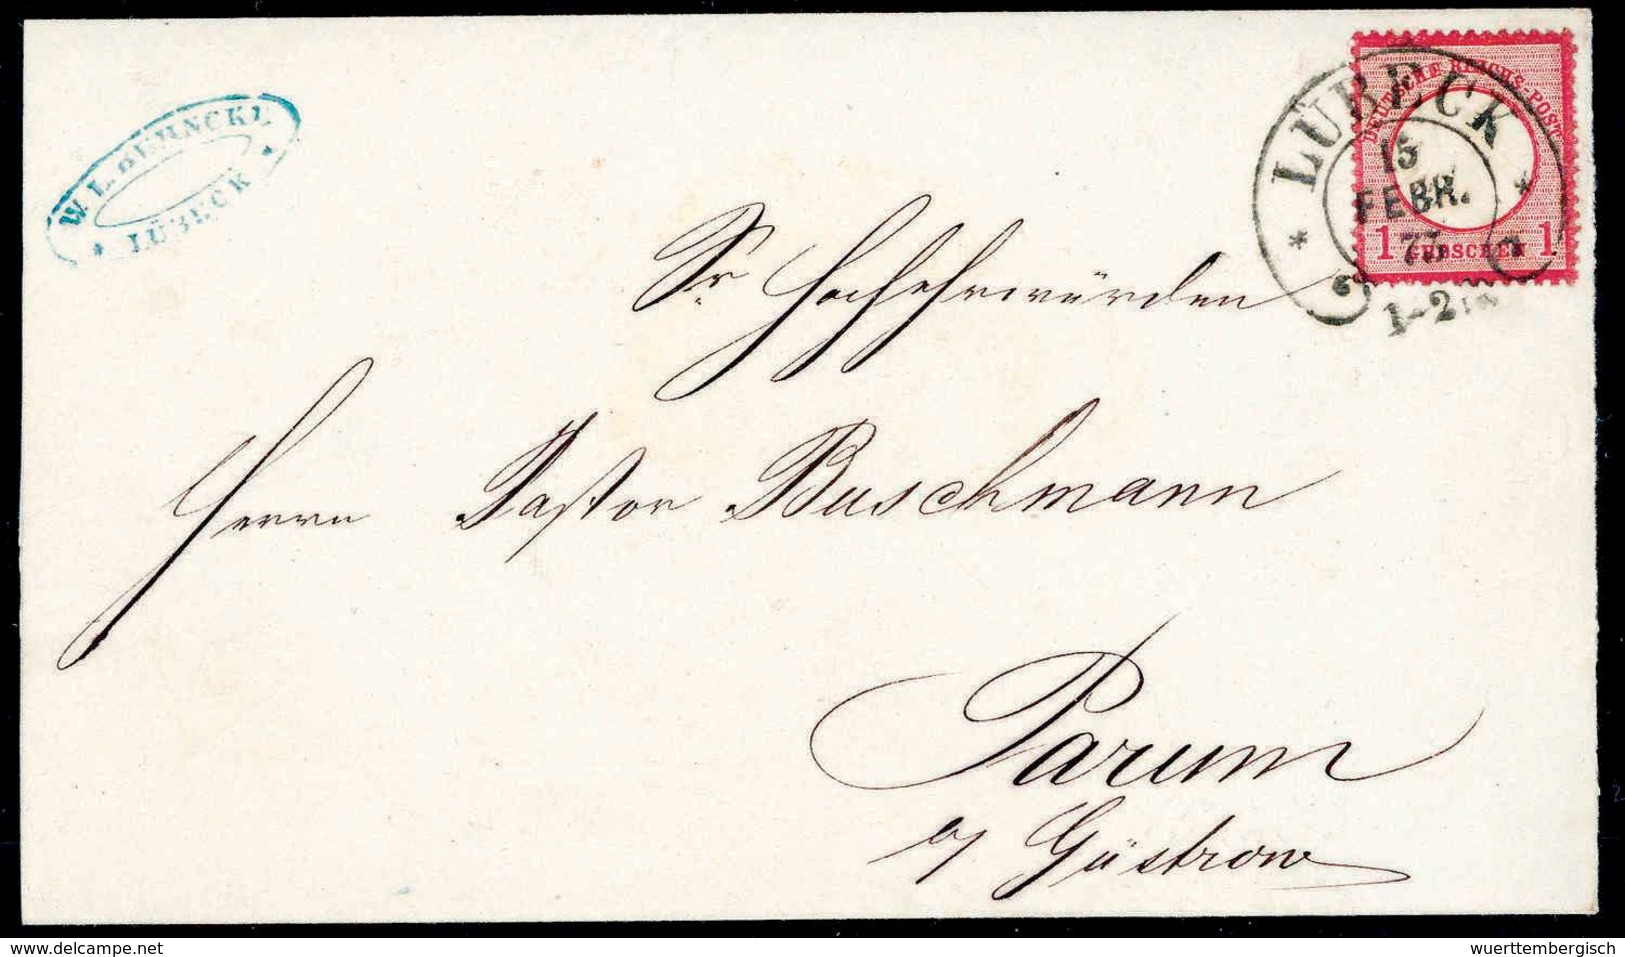 LÜBECK
DEUTSCHE REICHS-POST
15
FEBR.
73
1 GROSCHEN 1
1-2
LÜBECK
Sr. Hochehrwürden
Herrn Pastor Buschmann
Parum
Güstrow
www.delcampe.net
wuerttembergisch